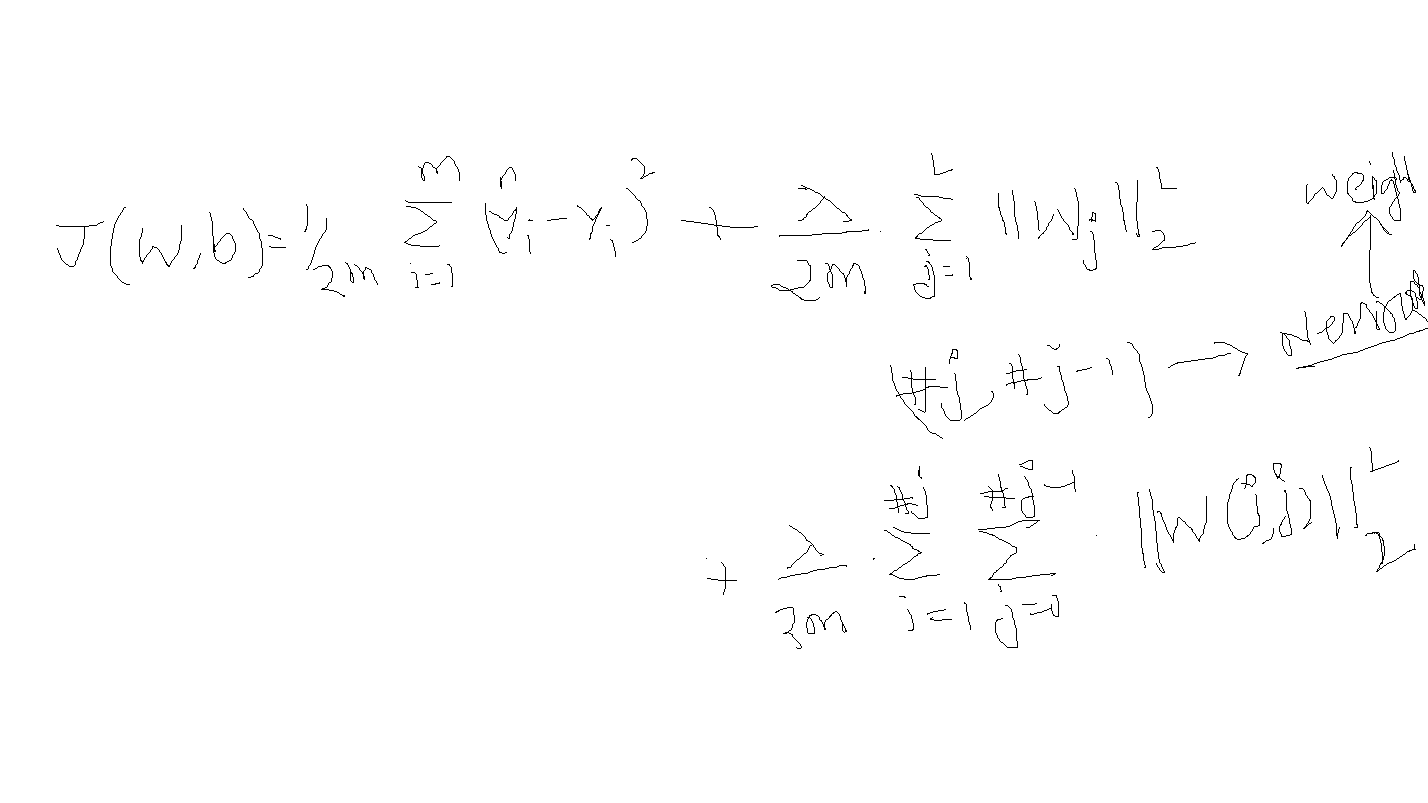 J(W,b)= 1/2m Σ_{i=1}^{m} (ŷ_i - y_i)^2 + λ/2m . Σ_{j=1}^{L} ||W_j||_2^2
weigh
(#j, #j-1) →
+ λ/2m . Σ_{i=1}^{#j} Σ_{j=0}^{#j-1} . ||W(i,j)||_2^2